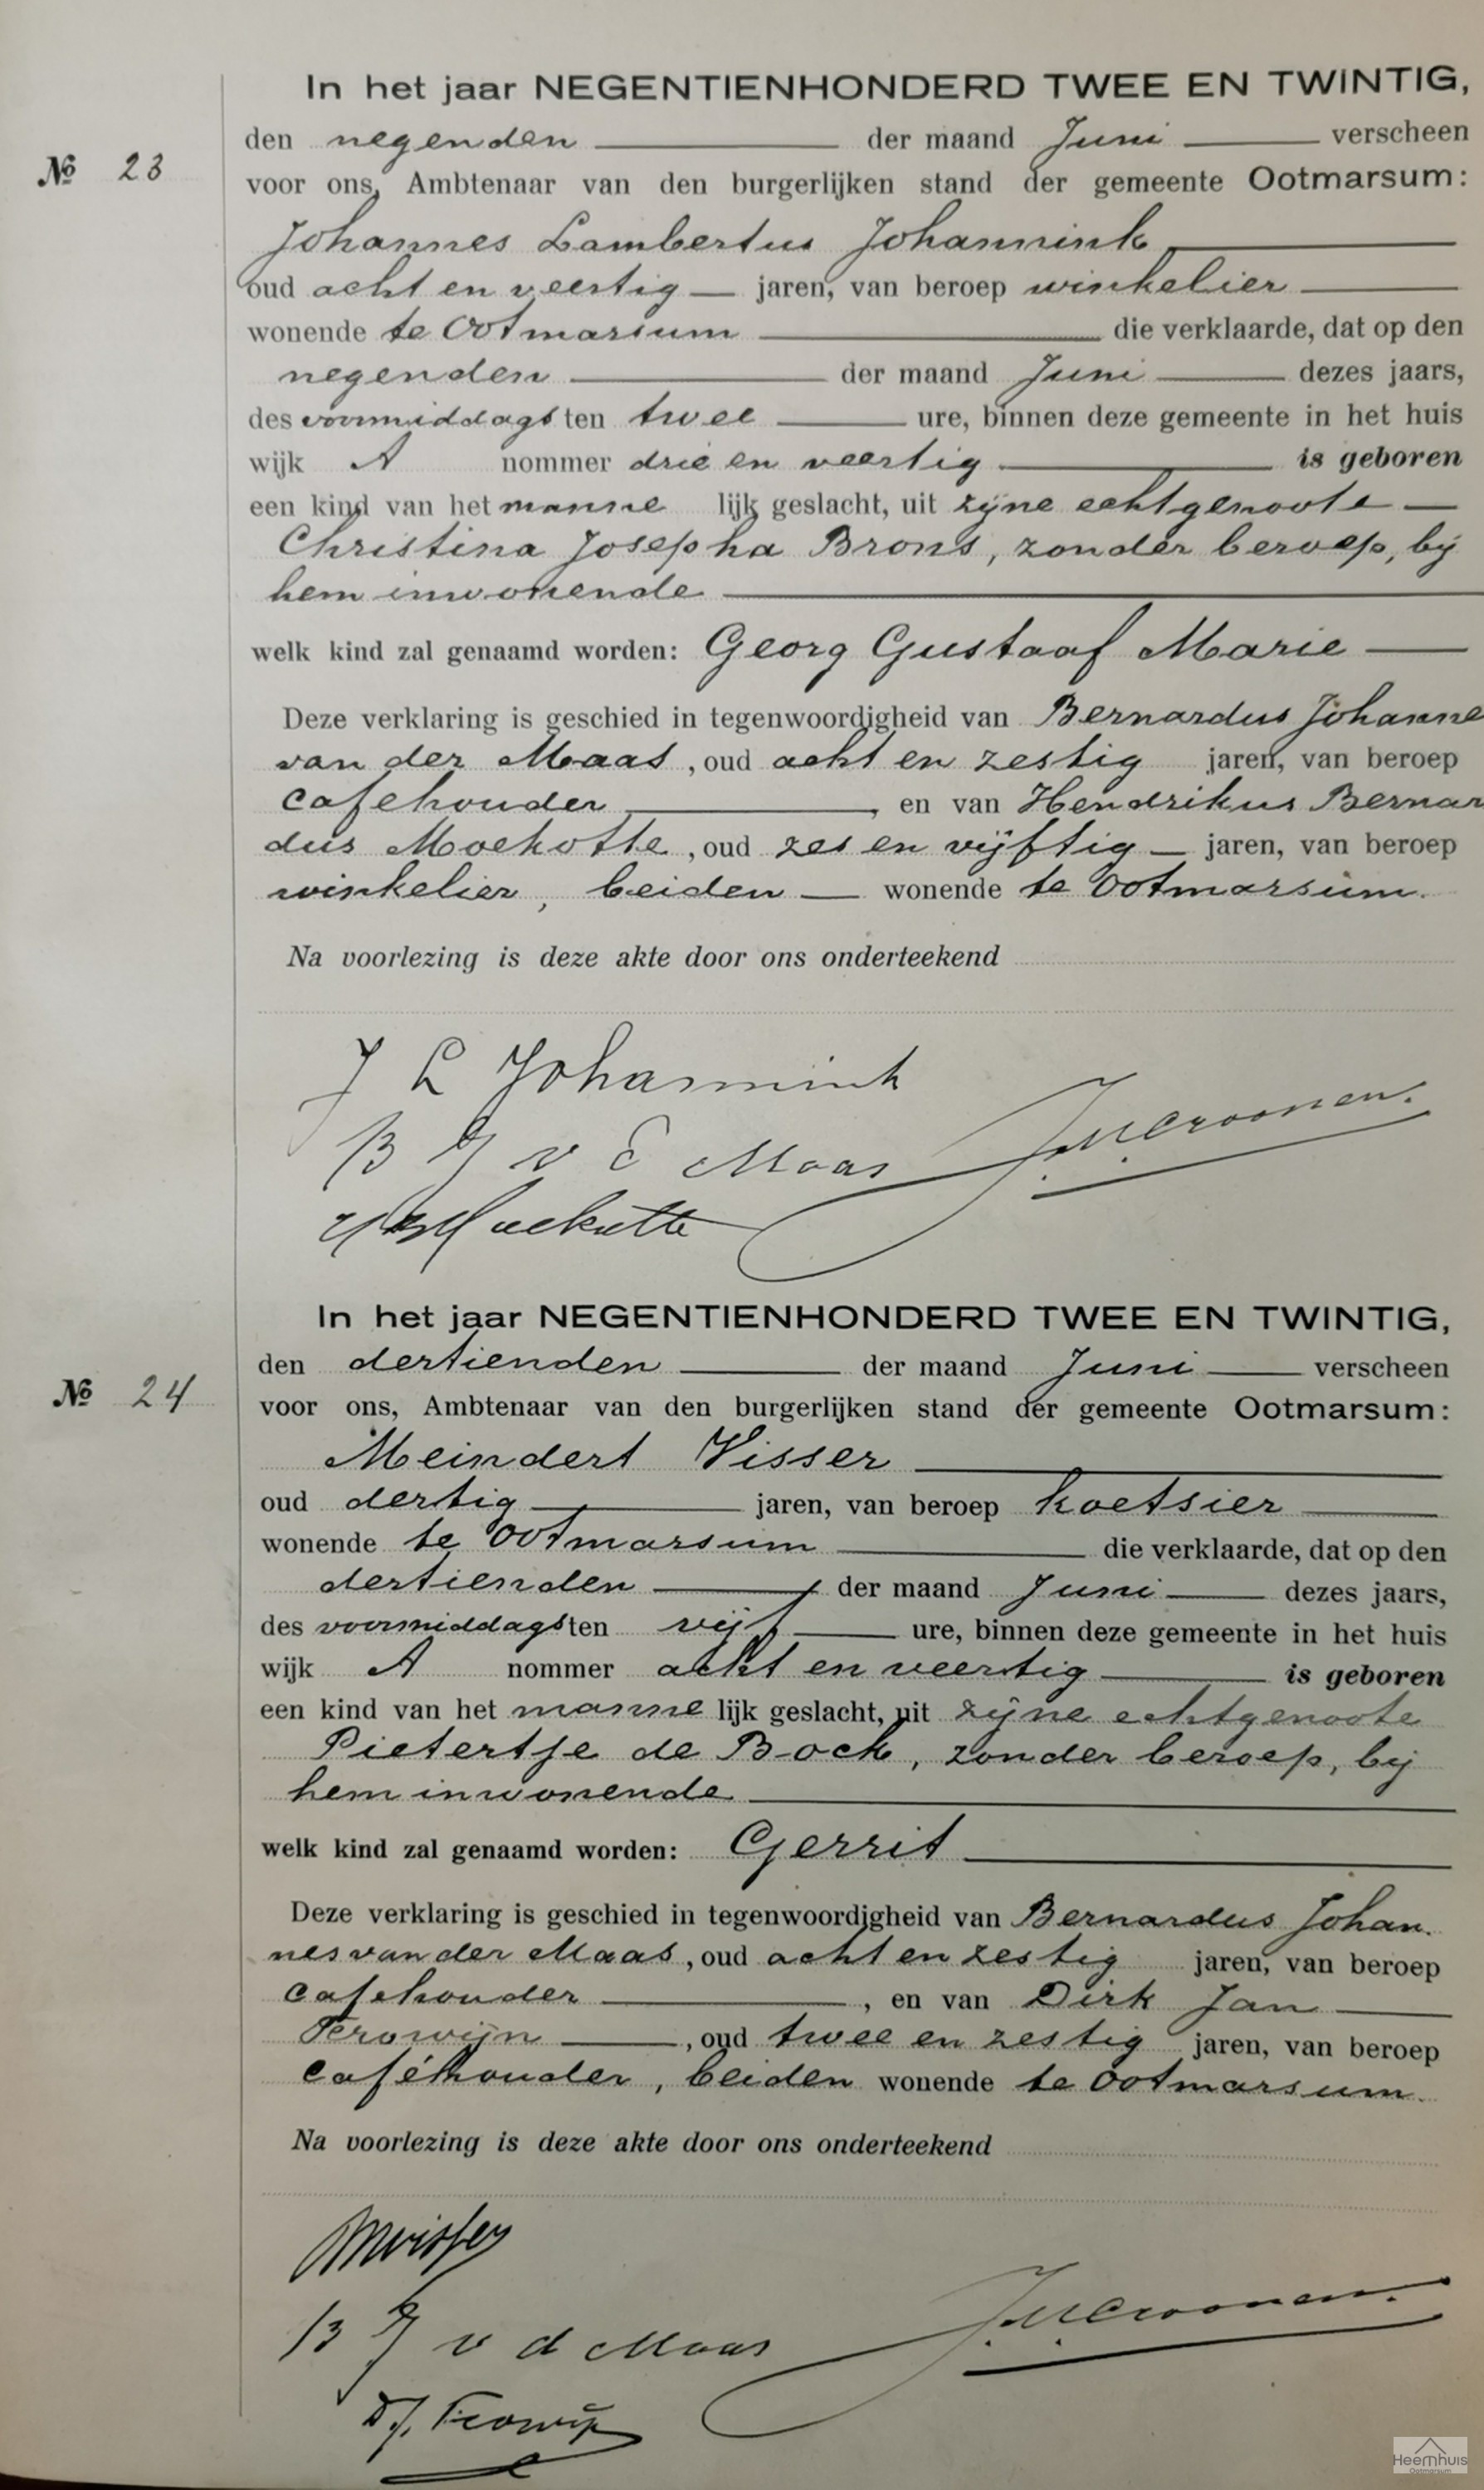 In het jaar NEGENTIENHONDERD TWEE EN TWINTIG,
den negenden der maand Juni verscheen
№ 23
voor ons, Ambtenaar van den burgerlijken stand der gemeente Ootmarsum:
Johannes Lambertus Johannink
oud acht en veertig jaren, van beroep winkelier
wonende te Ootmarsum die verklaarde, dat op den
negenden der maand Juni dezes jaars,
des voormiddags ten twee ure, binnen deze gemeente in het huis
wijk A nommer drie en veertig is geboren
een kind van het manne lijk geslacht, uit zijne echtgenoote
Christina Josepha Brons, zonder beroep, bij
hem inwonende
welk kind zal genaamd worden: Georg Gustaaf Marie
Deze verklaring is geschied in tegenwoordigheid van Bernardus Johanne
van der Maas, oud acht en zestig jaren, van beroep
cafehouder, en van Hendrikus Bernar
dus Moekotte, oud zes en vijftig jaren, van beroep
winkelier, beiden wonende te Ootmarsum.
Na voorlezing is deze akte door ons onderteekend
J L Johannink
B J v d Maas
Moekotte
In het jaar NEGENTIENHONDERD TWEE EN TWINTIG,
den dertienden der maand Juni verscheen
№ 24
voor ons, Ambtenaar van den burgerlijken stand der gemeente Ootmarsum:
Meindert Visser
oud dertig jaren, van beroep koetsier
wonende te Ootmarsum die verklaarde, dat op den
dertienden der maand Juni dezes jaars,
des voormiddags ten vijf ure, binnen deze gemeente in het huis
wijk A nommer acht en veertig is geboren
een kind van het manne lijk geslacht, uit zijne echtgenoote
Pietertje de Bock, zonder beroep, bij
hem inwonende
welk kind zal genaamd worden: Gerrit
Deze verklaring is geschied in tegenwoordigheid van Bernardus Johan
nes van der Maas, oud acht en zestig jaren, van beroep
cafehouder, en van Dirk Jan
Ferowijn, oud twee en zestig jaren, van beroep
caféhouder, beiden wonende te Ootmarsum.
Na voorlezing is deze akte door ons onderteekend
MVisser
B J v d Maas
D.J. Ferowijn
Heemhuis
Ootmarsum